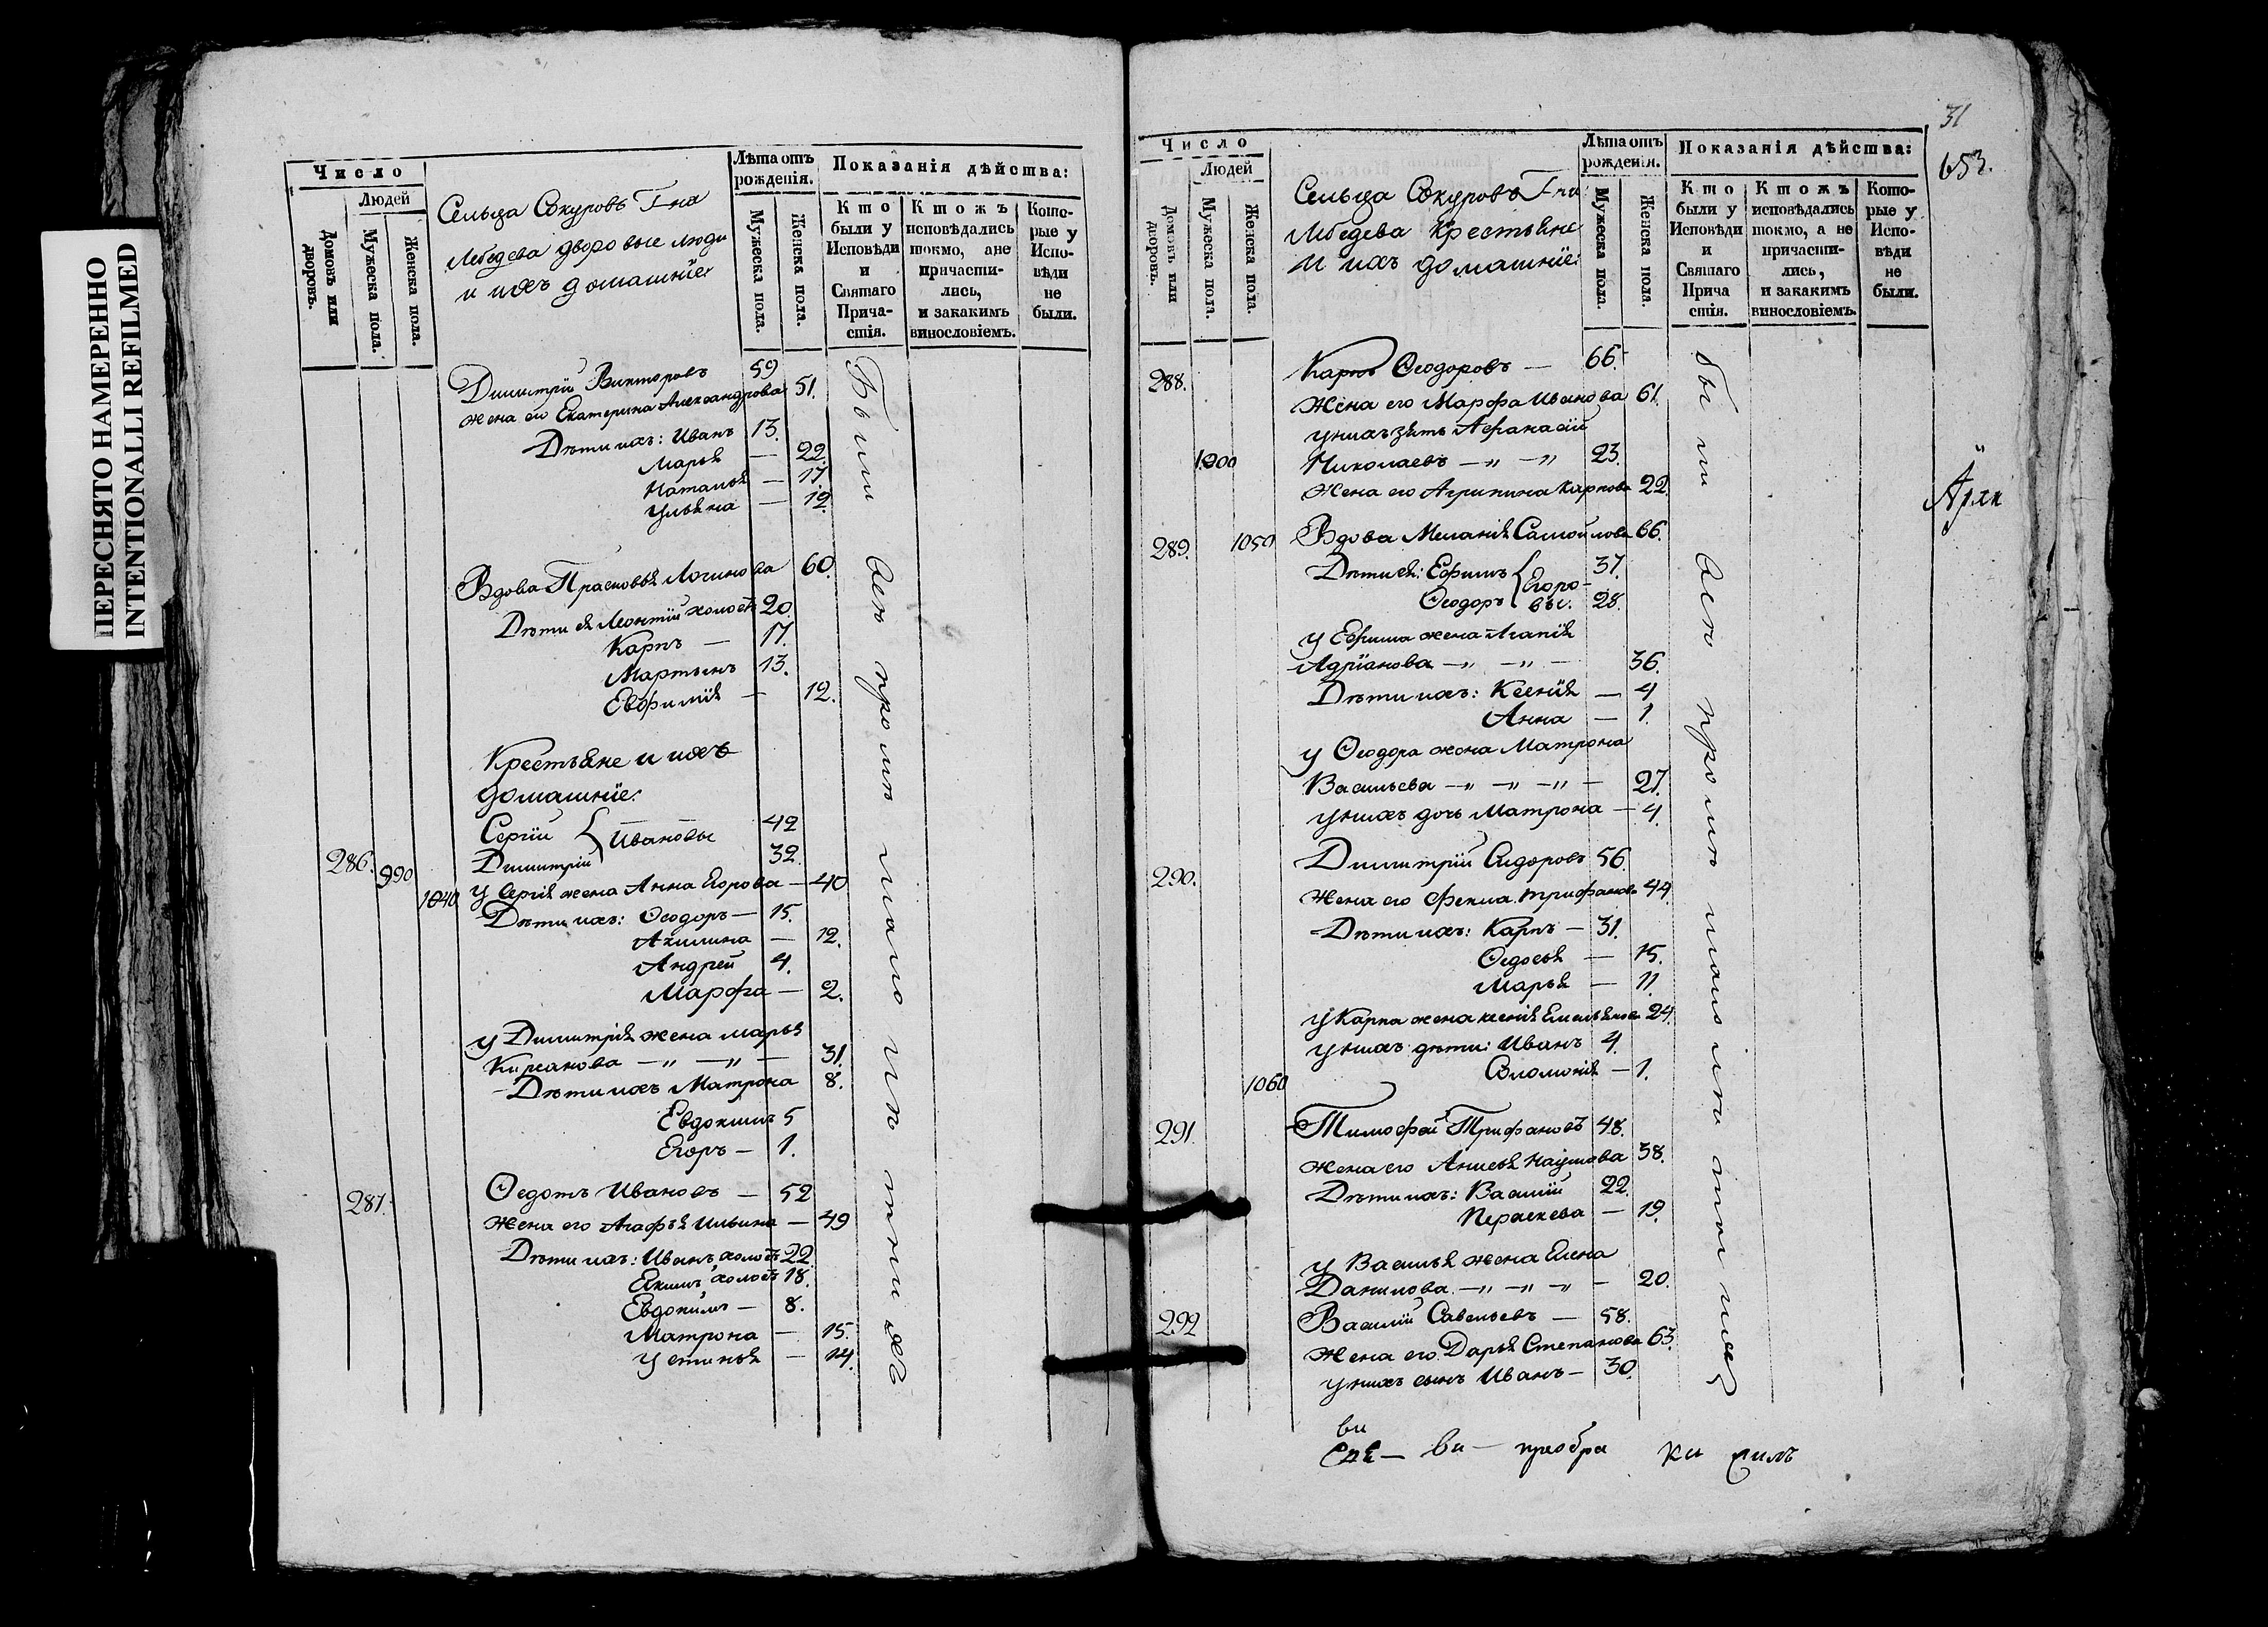 ПЕРЕСНЯТО НАМЕРЕННО
INTENTIONALLI REFILMED
Число
Людей
Домовъ или дворовъ.
Мужеска пола.
Женска пола.
Сельца Сокуровъ Гна
Лебедева дворовые люди
и ихъ домашніе
Лѣта отъ рожденія.
Мужеска пола.
Женска пола.
Показанія дѣйства:
Кто были у Исповѣди и Святаго Причастія.
Ктожъ исповѣдались токмо, а не причастились, и закакимъ винословіемъ.
Которые у Исповѣди не были.
Димитрій Викторовъ 59
жена его Екатерина Александрова 51.
Дѣти ихъ: Иванъ 13.
Марья — 22.
Наталья — 17.
Ульяна — 12.
Вдова Прасковья Логинова 60.
Дѣти ея Леонтій холостъ 20
Карпъ — 17.
Мартынъ 13.
Евфимія — 12.
Крестьяне и ихъ
домашніе:
Сергій { Ивановы 42
286. 990 Димитрій 32.
1040 У Сергія жена Анна Егорова — 40
Дѣти ихъ: Ѳеодоръ — 15.
Акилина — 12.
Андрей 4.
Марфа — 2.
у Димитрія жена Марья
Кирсанова —„ —„ — 31.
Дѣти ихъ Матрона 8.
Евдокимъ 5
Егоръ — 1.
287. Ѳедотъ Ивановъ — 52
Жена его Агафья Ильина — 49
Дѣти ихъ: Иванъ холостъ 22.
Екимъ холостъ 18.
Евдокимъ — 8.
Матрона — 15.
Устинья — 14.
Были всѣ кромѣ малолѣтнихъ
31
653.
Число
Людей
Домовъ или дворовъ.
Мужеска пола.
Женска пола.
Сельца Сокуровъ Гна
Лебедева Крестьяне
и ихъ домашніе:
Лѣта отъ рожденія.
Мужеска пола.
Женска пола.
Показанія дѣйства:
Кто были у Исповѣди и Святаго Причастія.
Ктожъ исповѣдались токмо, а не причастились, и закакимъ винословіемъ.
Которые у Исповѣди не были.
288. Карпъ Ѳеодоровъ — 66.
Жена его Марфа Иванова 61.
у нихъ зять Афанасій
1000 Николаевъ —„ —„ 23.
Жена его Агрипина Карпова 22.
289. 1050 Вдова Меланія Самойлова 66.
Дѣти ея: Ефимъ { Егоровы. 37.
Ѳеодоръ 28.
у Ефима жена Агапія
Адріанова —„ —„ — 36.
Дѣти ихъ: Ксенія — 4
Анна — 1.
у Ѳеодора жена Матрона
Васильева —„ —„ —„ — 27.
у нихъ дочь Матрона — 4.
290. Димитрій Сидоровъ 56.
Жена его Фекла Трифанова 44.
Дѣти ихъ: Карпъ — 31.
Ѳедосья — 15.
Марья — 11.
У Карпа жена Ксенія Емельянова 24.
у нихъ дѣти: Иванъ 4.
1060 Соломонія — 1.
291. Тимофей Трифановъ 48.
Жена его Анисья Наумова 38.
Дѣти ихъ: Василій 22.
Параскева — 19.
у Василья жена Елена
Данилова —„ —„ —„ — 20.
292 Василій Савельевъ — 58.
Жена его Дарья Степанова 63.
у нихъ сынъ Иванъ — 30.
были всѣ кромѣ малолѣтнихъ
ви
ви — преобра ки